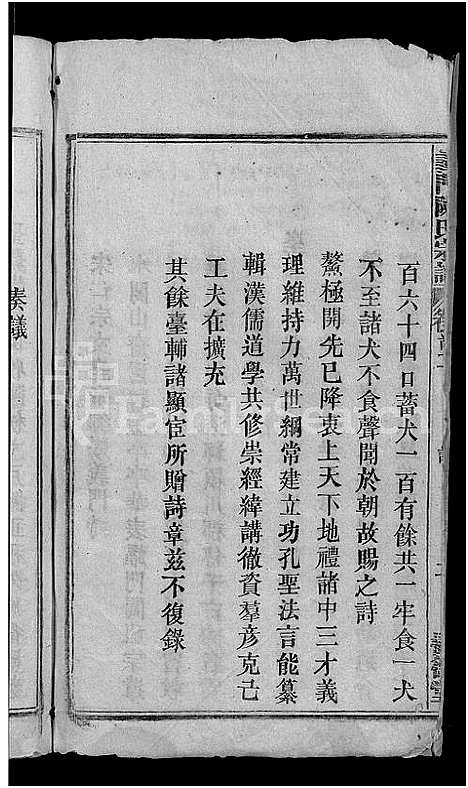 百六十四口蓄犬一百有餘共一牢食一犬
不至諸犬不食聲聞於朝故賜之詩
鰲極開先已降衷上天下地禮諸中三才義
理維持力萬世綱常建立功孔聖法言能纂
輯漢儒道學共修崇經緯講徹資羣彥克己
工夫在擴充
其餘臺輔諸顯宦所贈詩章茲不復錄
奏議